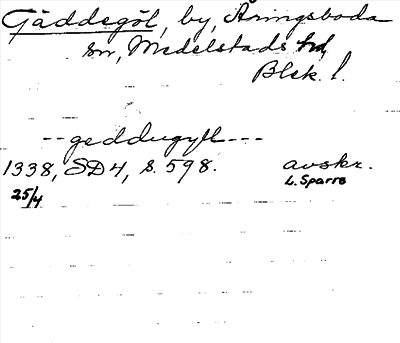 Gäddegöl, by, Åringsboda
sn, Medelstads hd,
Blek. l.
-- geddugyll ---
1338, SD 4, s. 598. avskr.
25/4 L. Sparre